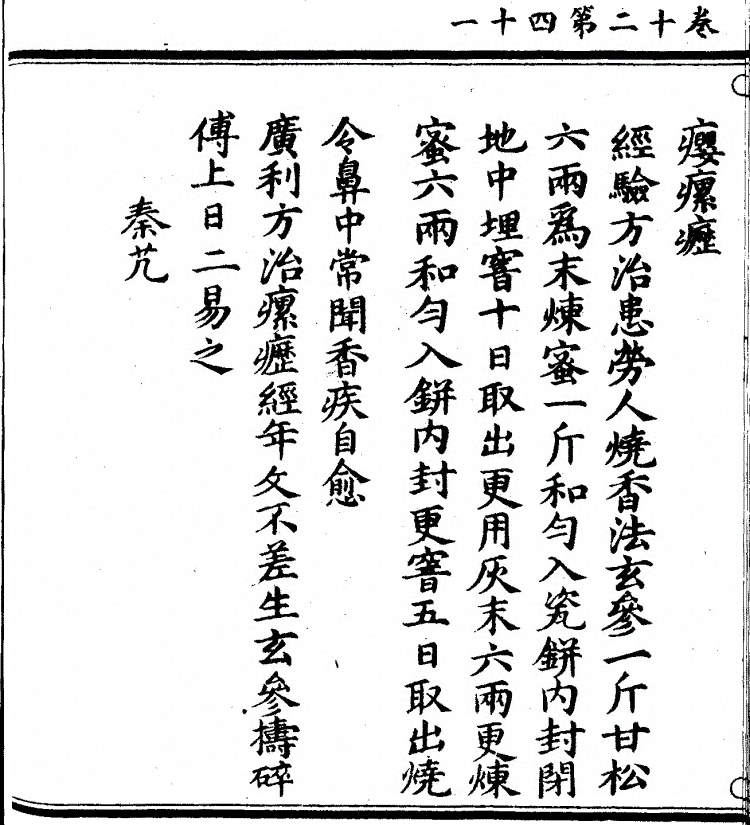 卷十二第四十一
癭瘰癧
經驗方治患勞人燒香法玄參一斤甘松
六兩爲末煉蜜一斤和勻入瓷缾内封閉
地中埋窨十日取出更用灰末六兩更煉
蜜六兩和勻入缾内封更窨五日取出燒
令鼻中常聞香疾自愈
廣利方治瘰癧經年久不差生玄參擣碎
傅上日二易之
秦艽